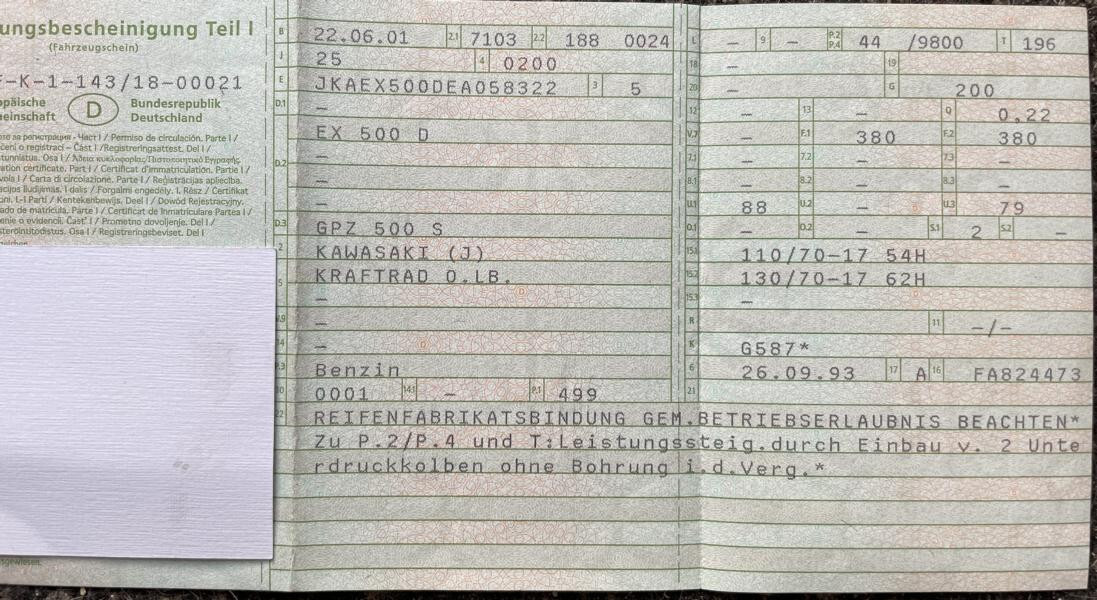 ungsbescheinigung Teil I
(Fahrzeugschein)
F-K-1-143/18-00021
opäische
einschaft
D
Bundesrepublik
Deutschland
Permiso de circulación. Parte I /
čení o registraci – Část I / Registreringsattest. Del I /
tunnistus. Osa I / Άδεια κυκλοφορίας/Πιστοποιητικό Εγγραφής.
ation certificate. Part I / Certificat d'immatriculation. Partie I /
vola I / Carta di circolazione. Parte I / Reģistrācijas apliecība.
acijos liudijimas. I dalis / Forgalmi engedély. I. Rész / Ċertifikat
oni. L-I Parti / Kentekenbewijs. Deel I / Dowód Rejestracyjny.
ado de matrícula. Parte I / Certificat de Inmatriculare Partea I /
enie o evidencii. Časť I / Prometno dovoljenje. Del I /
steröintitodistus. Osa I / Registreringsbeviset. Del I
B 22.06.01 2.1 7103 2.2 188 0024
J 25 4 0200
E JKAEX500DEA058322 3 5
D.1 –
EX 500 D
D.2 –
–
–
D.3 GPZ 500 S
2 KAWASAKI (J)
KRAFTRAD O.LB.
5 –
V.9 –
14 –
P.3 Benzin
10 0001 14.1 – P.1 499
L – 9 – P.2 P.4 44 /9800 T 196
18 – 19
20 G 200
12 – 13 – Q 0,22
V.7 – F.1 380 F.2 380
7.1 – 7.2 – 7.3 –
8.1 – 8.2 – 8.3 –
U.1 88 U.2 – U.3 79
O.1 – O.2 – S.1 2 S.2 –
15.1 110/70-17 54H
15.2 130/70-17 62H
15.3 –
R 11 –/–
K G587*
6 26.09.93 17 A 16 FA824473
21
22 REIFENFABRIKATSBINDUNG GEM.BETRIEBSERLAUBNIS BEACHTEN*
Zu P.2/P.4 und T:Leistungssteig.durch Einbau v. 2 Unte
rdruckkolben ohne Bohrung i.d.Verg.*